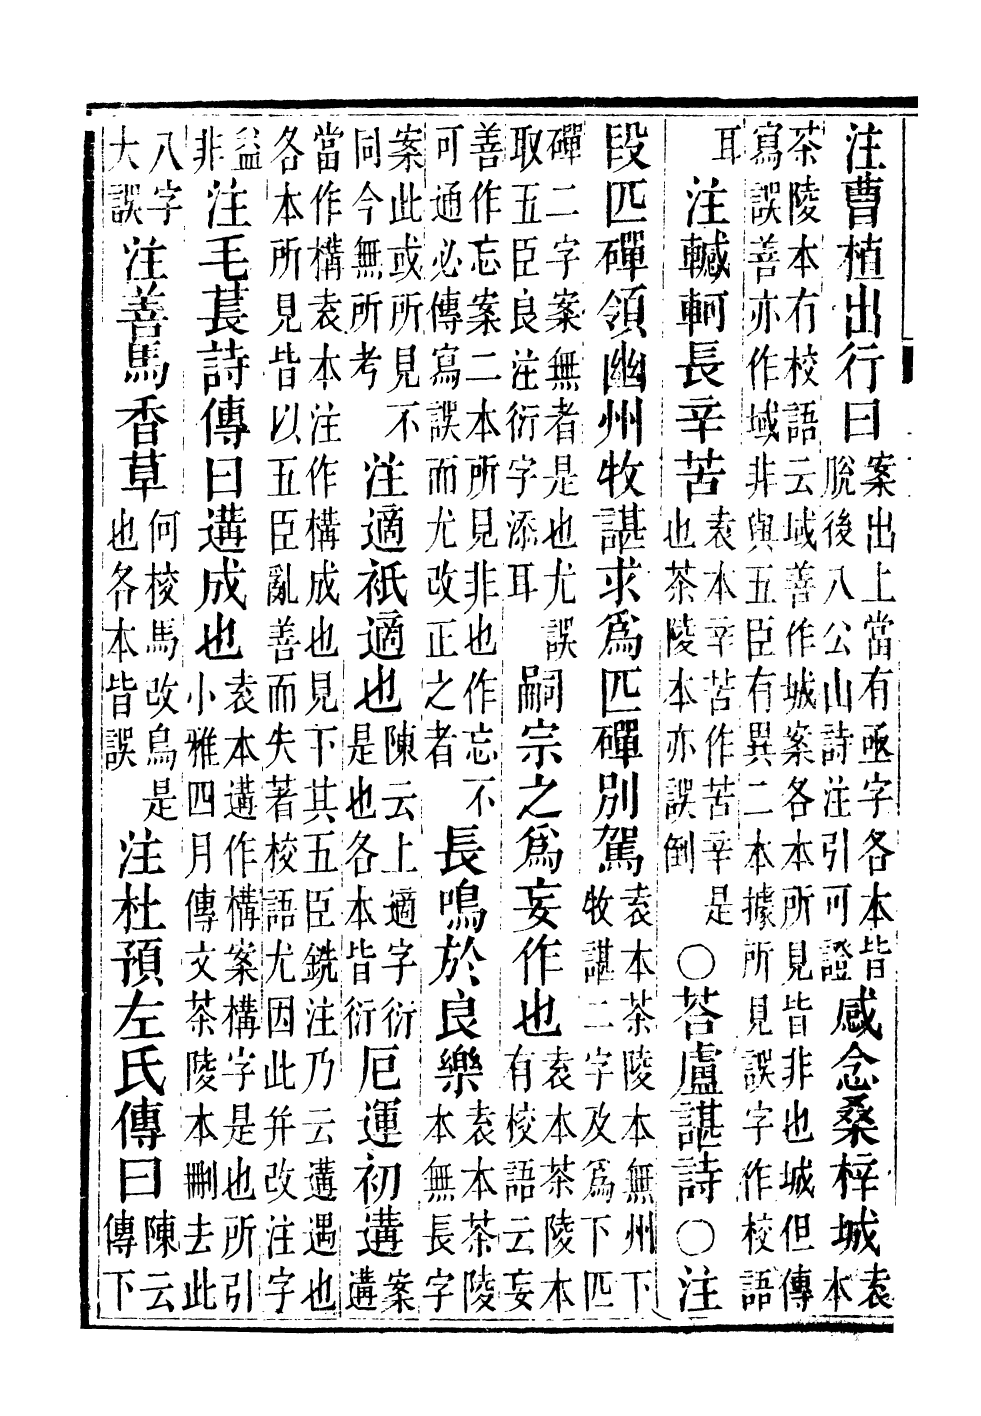 注曹植出行曰案出上當有亟字各本皆脫後八公山詩注引可證感念桑梓城袁本
茶陵本有校語云域善作城案各本所見皆非也城但傳
寫誤善亦作域非與五臣有異二本據所見誤字作校語
耳注轗軻長辛苦袁本辛苦作苦辛是也茶陵本亦誤倒○荅盧諶詩○注
段匹磾領幽州牧諶求爲匹磾別駕袁本茶陵本無州下牧諶二字及爲下匹
磾二字案無者是也尤誤取五臣良注衍字添耳嗣宗之爲妄作也袁本茶陵本有校語云妄
善作忘案二本所見非也作忘不可通必傳寫誤而尤改正之者長鳴於良樂袁本茶陵本無長字
案此或所見不同今無所考注適祇適也陳云上適字衍是也各本皆衍厄運初遘案遘
當作構袁本注作構成也見下其五臣銑注乃云遘遇也
各本所見皆以五臣亂善而失著校語尤因此并改注字
益非注毛萇詩傳曰遘成也袁本遘作構案構字是也所引小雅四月傳文茶陵本刪去此
八字大誤注善馬香草何校馬改鳥是也各本皆誤注杜預左氏傳曰陳云傳下